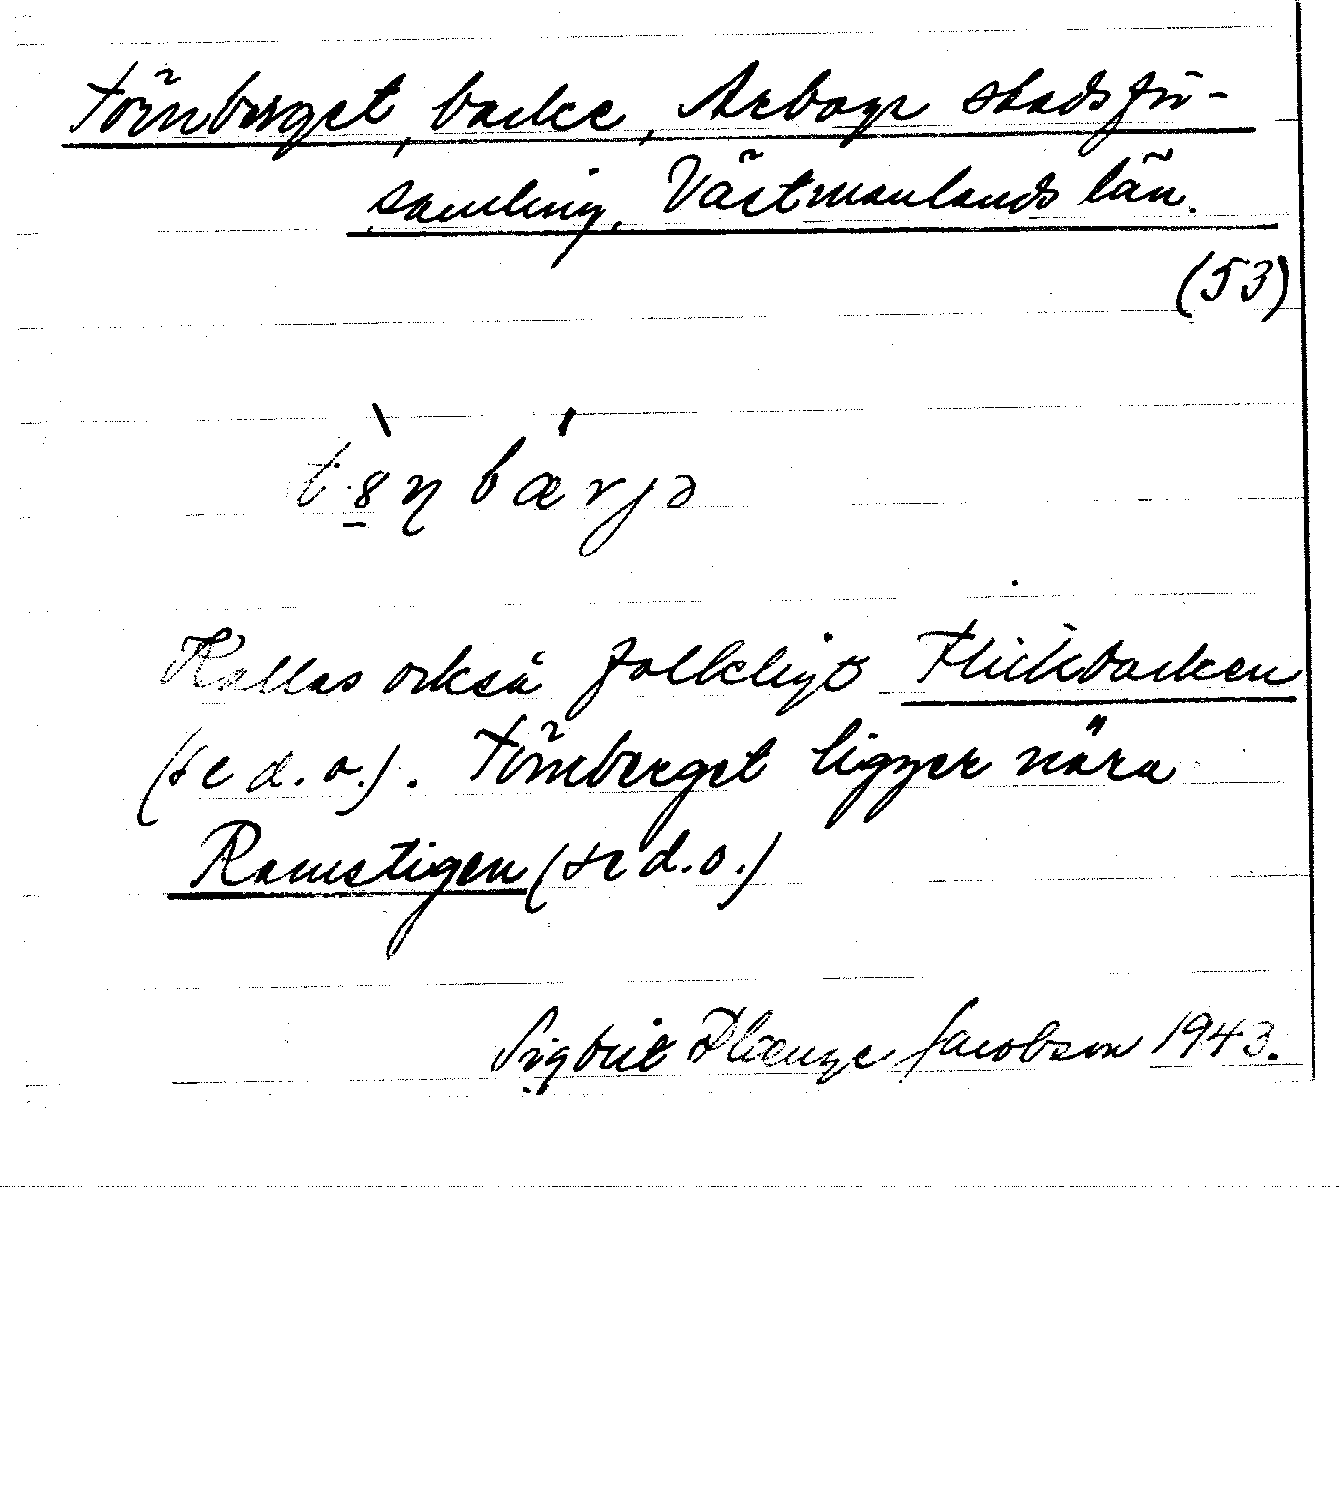 Törnberget, backe, Arboga stadsför-
samling, Västmanlands län.
(53)
Kallas också folkligt Flickbacken
(se d.o.). Törneberget ligger nära
Ramstigen (se d.o.)
Sigbrit Plænge Jacobson 1943.